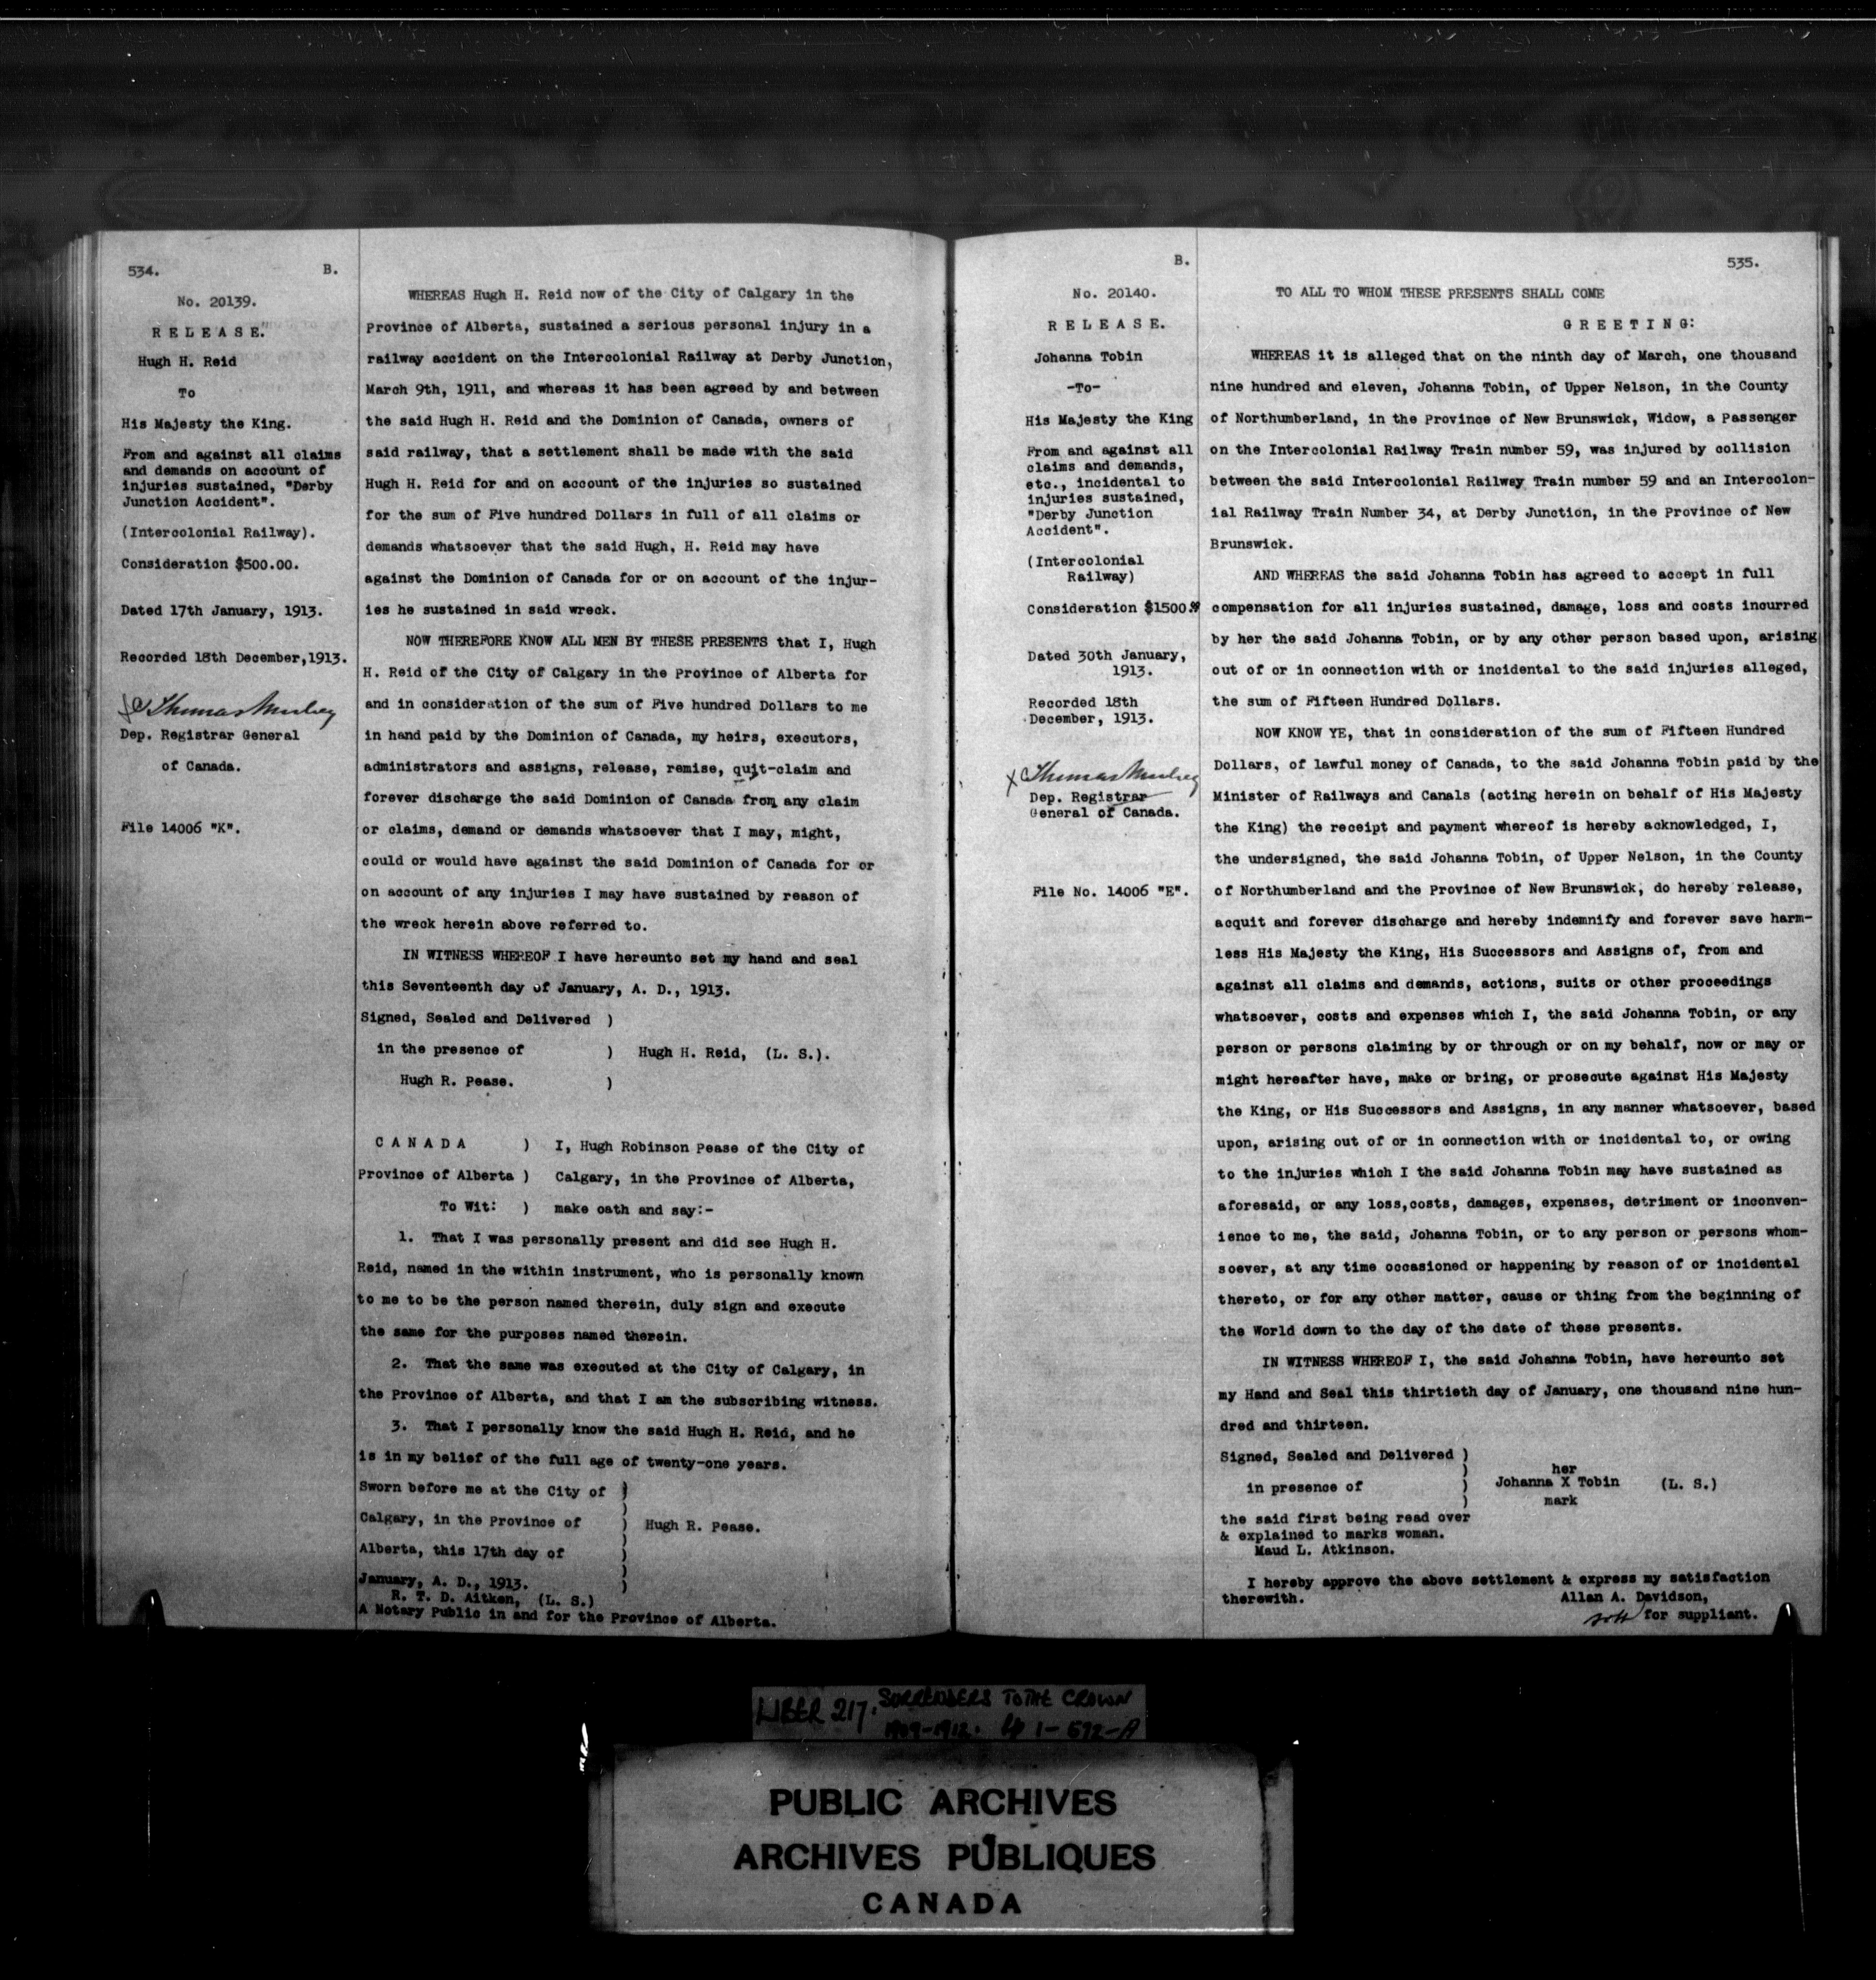 534.
B.
No. 20139.
R E L E A S E.
Hugh H. Reid
To
His Majesty the King.
From and against all claims
and demands on account of
injuries sustained, "Derby
Junction Accident".
(Intercolonial Railway).
Consideration $500.00.
Dated 17th January, 1913.
Recorded 18th December,1913.
Thomas Mulvey
Dep. Registrar General
of Canada.
File 14006 "K".
WHEREAS Hugh H. Reid now of the City of Calgary in the
Province of Alberta, sustained a serious personal injury in a
railway accident on the Intercolonial Railway at Derby Junction,
March 9th, 1911, and whereas it has been agreed by and between
the said Hugh H. Reid and the Dominion of Canada, owners of
said railway, that a settlement shall be made with the said
Hugh H. Reid for and on account of the injuries so sustained
for the sum of Five hundred Dollars in full of all claims or
demands whatsoever that the said Hugh, H. Reid may have
against the Dominion of Canada for or on account of the injur-
ies he sustained in said wreck.
NOW THEREFORE KNOW ALL MEN BY THESE PRESENTS that I, Hugh
H. Reid of the City of Calgary in the Province of Alberta for
and in consideration of the sum of Five hundred Dollars to me
in hand paid by the Dominion of Canada, my heirs, executors,
administrators and assigns, release, remise, quit-claim and
forever discharge the said Dominion of Canada from any claim
or claims, demand or demands whatsoever that I may, might,
could or would have against the said Dominion of Canada for or
on account of any injuries I may have sustained by reason of
the wreck herein above referred to.
IN WITNESS WHEREOF I have hereunto set my hand and seal
this Seventeenth day of January, A. D., 1913.
Signed, Sealed and Delivered )
in the presence of ) Hugh H. Reid, (L. S.).
Hugh R. Pease. )
C A N A D A ) I, Hugh Robinson Pease of the City of
Province of Alberta ) Calgary, in the Province of Alberta,
To Wit: ) make oath and say:-
1. That I was personally present and did see Hugh H.
Reid, named in the within instrument, who is personally known
to me to be the person named therein, duly sign and execute
the same for the purposes named therein.
2. That the same was executed at the City of Calgary, in
the Province of Alberta, and that I am the subscribing witness.
3. That I personally know the said Hugh H. Reid, and he
is in my belief of the full age of twenty-one years.
Sworn before me at the City of )
Calgary, in the Province of ) Hugh R. Pease.
Alberta, this 17th day of )
January, A. D., 1913. )
R. T. D. Aitken, (L. S.)
A Notary Public in and for the Province of Alberta.
B.
535.
No. 20140.
R E L E A S E.
Johanna Tobin
-To-
His Majesty the King
From and against all
claims and demands,
etc., incidental to
injuries sustained,
"Derby Junction
Accident".
(Intercolonial
Railway)
Consideration $1500.00
Dated 30th January,
1913.
Recorded 18th
December, 1913.
Thomas Mulvey
Dep. Registrar
General of Canada.
File No. 14006 "E".
TO ALL TO WHOM THESE PRESENTS SHALL COME
G R E E T I N G:
WHEREAS it is alleged that on the ninth day of March, one thousand
nine hundred and eleven, Johanna Tobin, of Upper Nelson, in the County
of Northumberland, in the Province of New Brunswick, Widow, a Passenger
on the Intercolonial Railway Train number 59, was injured by collision
between the said Intercolonial Railway Train number 59 and an Intercolon-
ial Railway Train Number 34, at Derby Junction, in the Province of New
Brunswick.
AND WHEREAS the said Johanna Tobin has agreed to accept in full
compensation for all injuries sustained, damage, loss and costs incurred
by her the said Johanna Tobin, or by any other person based upon, arising
out of or in connection with or incidental to the said injuries alleged,
the sum of Fifteen Hundred Dollars.
NOW KNOW YE, that in consideration of the sum of Fifteen Hundred
Dollars, of lawful money of Canada, to the said Johanna Tobin paid by the
Minister of Railways and Canals (acting herein on behalf of His Majesty
the King) the receipt and payment whereof is hereby acknowledged, I,
the undersigned, the said Johanna Tobin, of Upper Nelson, in the County
of Northumberland and the Province of New Brunswick, do hereby release,
acquit and forever discharge and hereby indemnify and forever save harm-
less His Majesty the King, His Successors and Assigns of, from and
against all claims and demands, actions, suits or other proceedings
whatsoever, costs and expenses which I, the said Johanna Tobin, or any
person or persons claiming by or through or on my behalf, now or may or
might hereafter have, make or bring, or prosecute against His Majesty
the King, or His Successors and Assigns, in any manner whatsoever, based
upon, arising out of or in connection with or incidental to, or owing
to the injuries which I the said Johanna Tobin may have sustained as
aforesaid, or any loss,costs, damages, expenses, detriment or inconven-
ience to me, the said, Johanna Tobin, or to any person or persons whom-
soever, at any time occasioned or happening by reason of or incidental
thereto, or for any other matter, cause or thing from the beginning of
the World down to the day of the date of these presents.
IN WITNESS WHEREOF I, the said Johanna Tobin, have hereunto set
my Hand and Seal this thirtieth day of January, one thousand nine hun-
dred and thirteen.
Signed, Sealed and Delivered )
her
in presence of ) Johanna X Tobin (L. S.)
mark
the said first being read over
& explained to marks woman.
Maud L. Atkinson.
I hereby approve the above settlement & express my satisfaction
therewith. Allan A. Davidson,
for suppliant.
LIBER 217. SURRENDERS TO THE CROWN
1909-1912. 1-592-A
PUBLIC ARCHIVES
ARCHIVES PUBLIQUES
CANADA